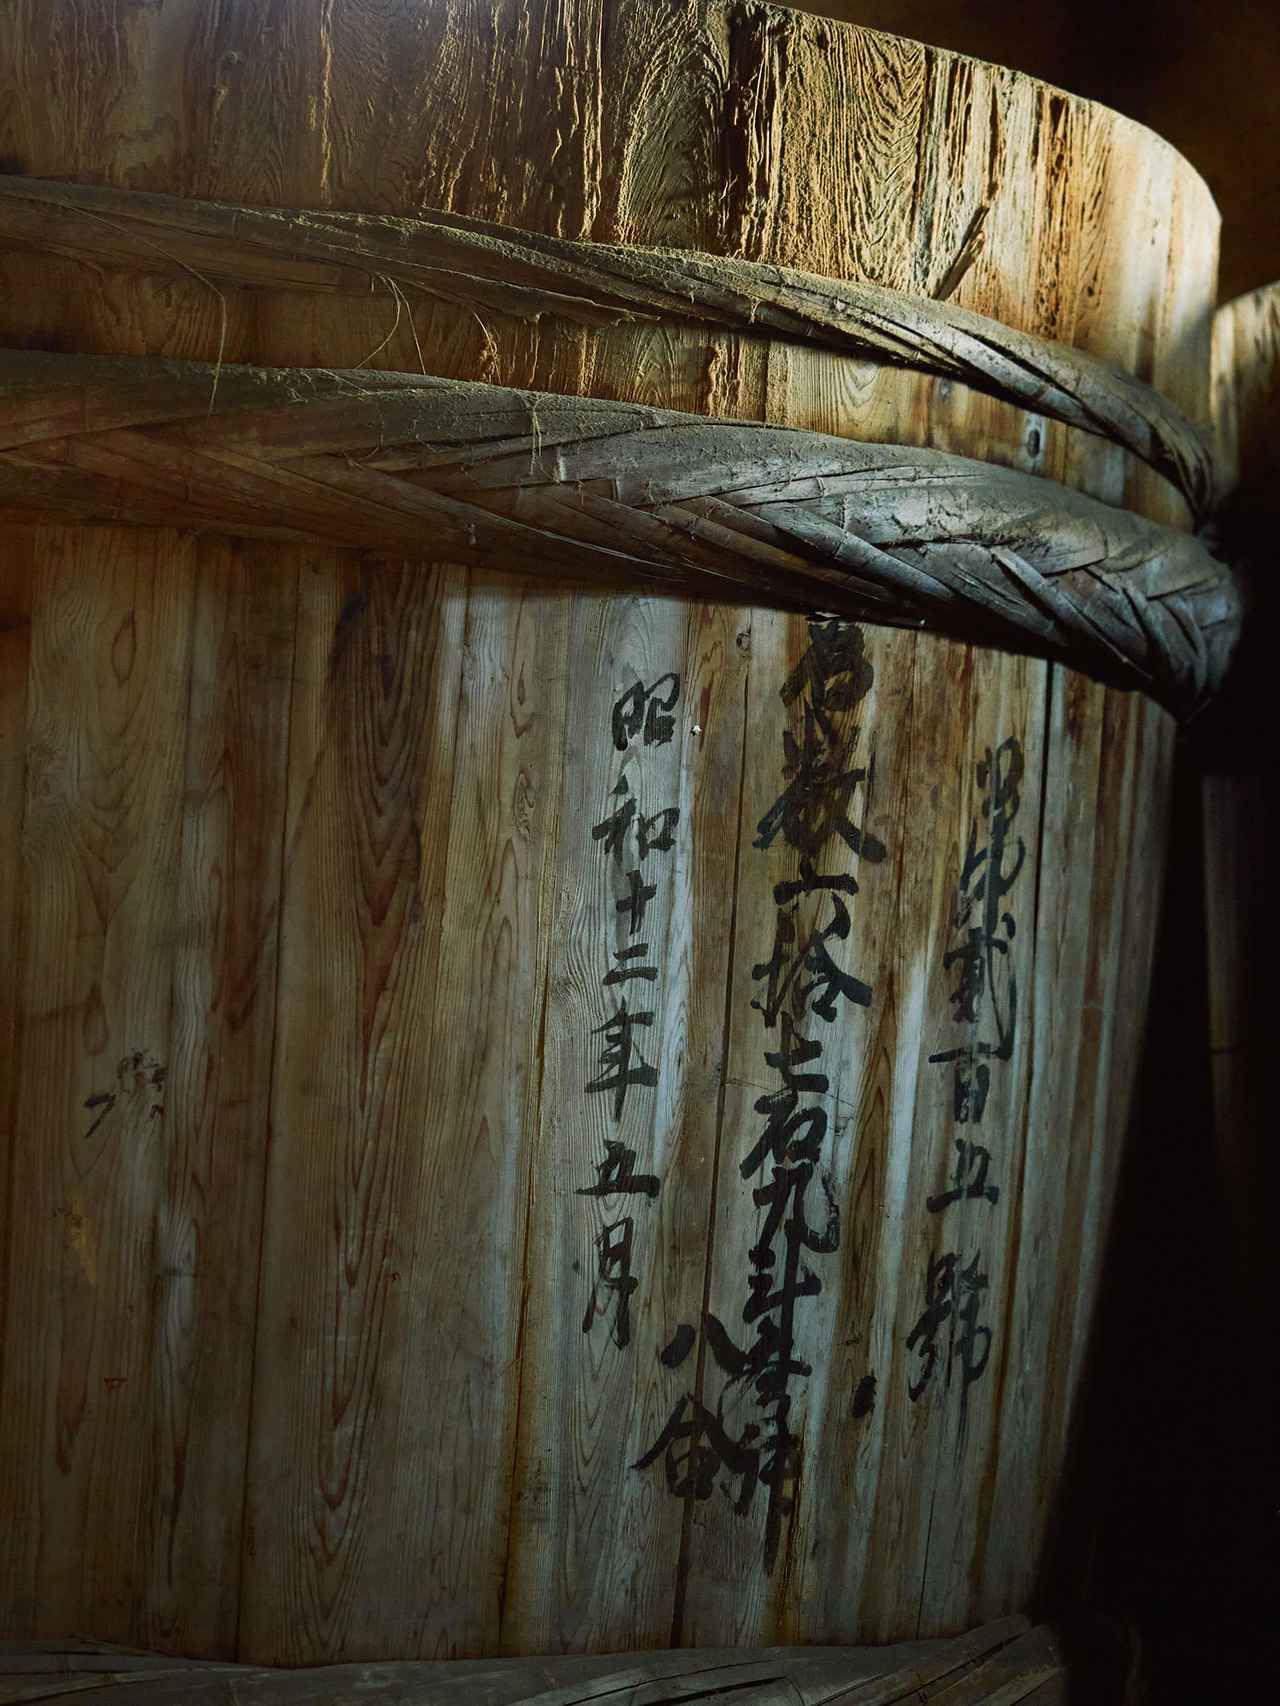 第貳百五號
石数六拾七石九斗
八合
昭和十二年五月